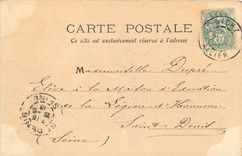 CARTE POSTALE
Ce côté est exclusivement réservé à l'adresse
ALLIER
Mademoiselle Dupré
Elève à la Maison d'Education
de la Légion d'Honneur
Saint-Denis
(Seine)
ST DENIS
SEINE